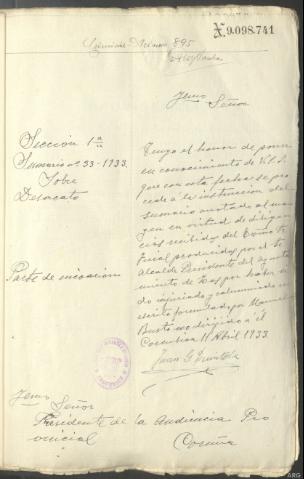 X.9.098.741
895
Ilmo
Señor
Sección 1ª
Sumario nº 33-1933.
Sobre
Desacato
Parte de incoacion
Tengo el honor de poner
en conocimiento de V.S.I.
que con esta fecha se pro
cede a la instruccion del
sumario anotado al mar
gen en virtud de diligen
cias recibidas del
producidas por el Sr
Alcalde Presidente del ayunta
miento de Cee por haber si
do injuriado y calumniado en
escrito formulado por Manuel
Bustamo dirigido a él
Corcubion 11 Abril 1933.
Juan G
Ilmo
Señor
Presidente de la Audiencia Pro
vincial
Coruña
ARG